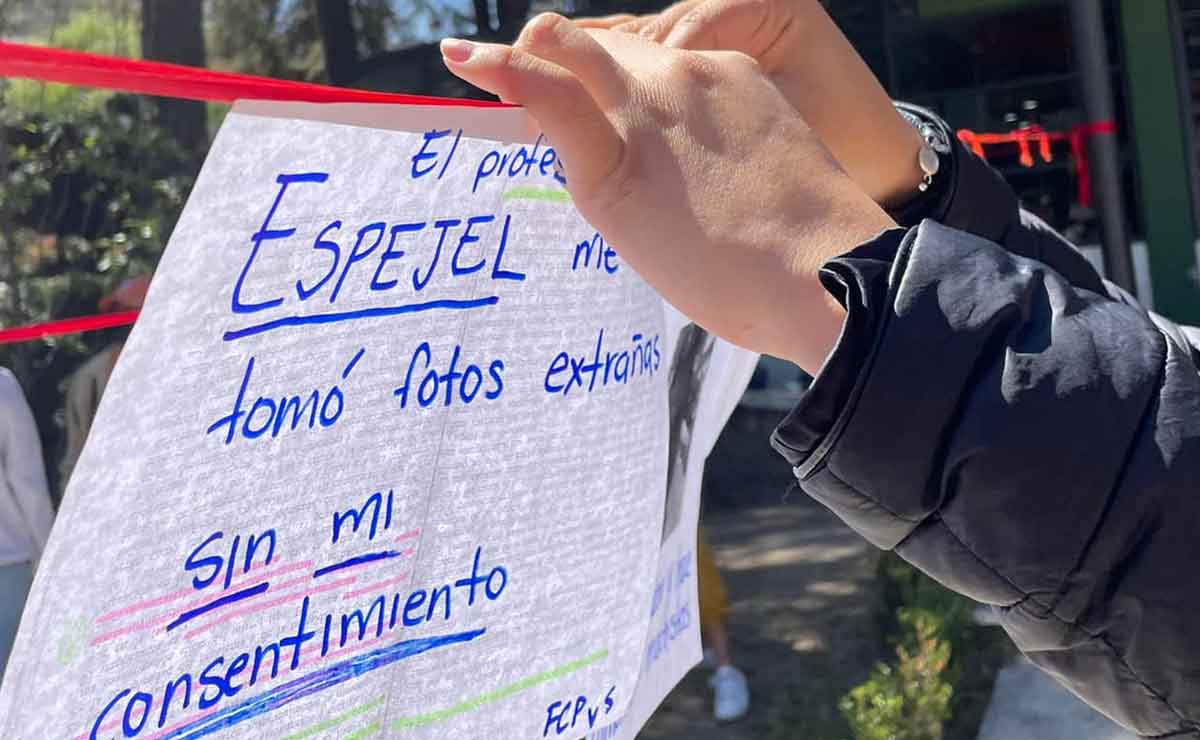 El profes
ESPEJEL me
tomó fotos extrañas
sin mi
consentimiento
FCPyS